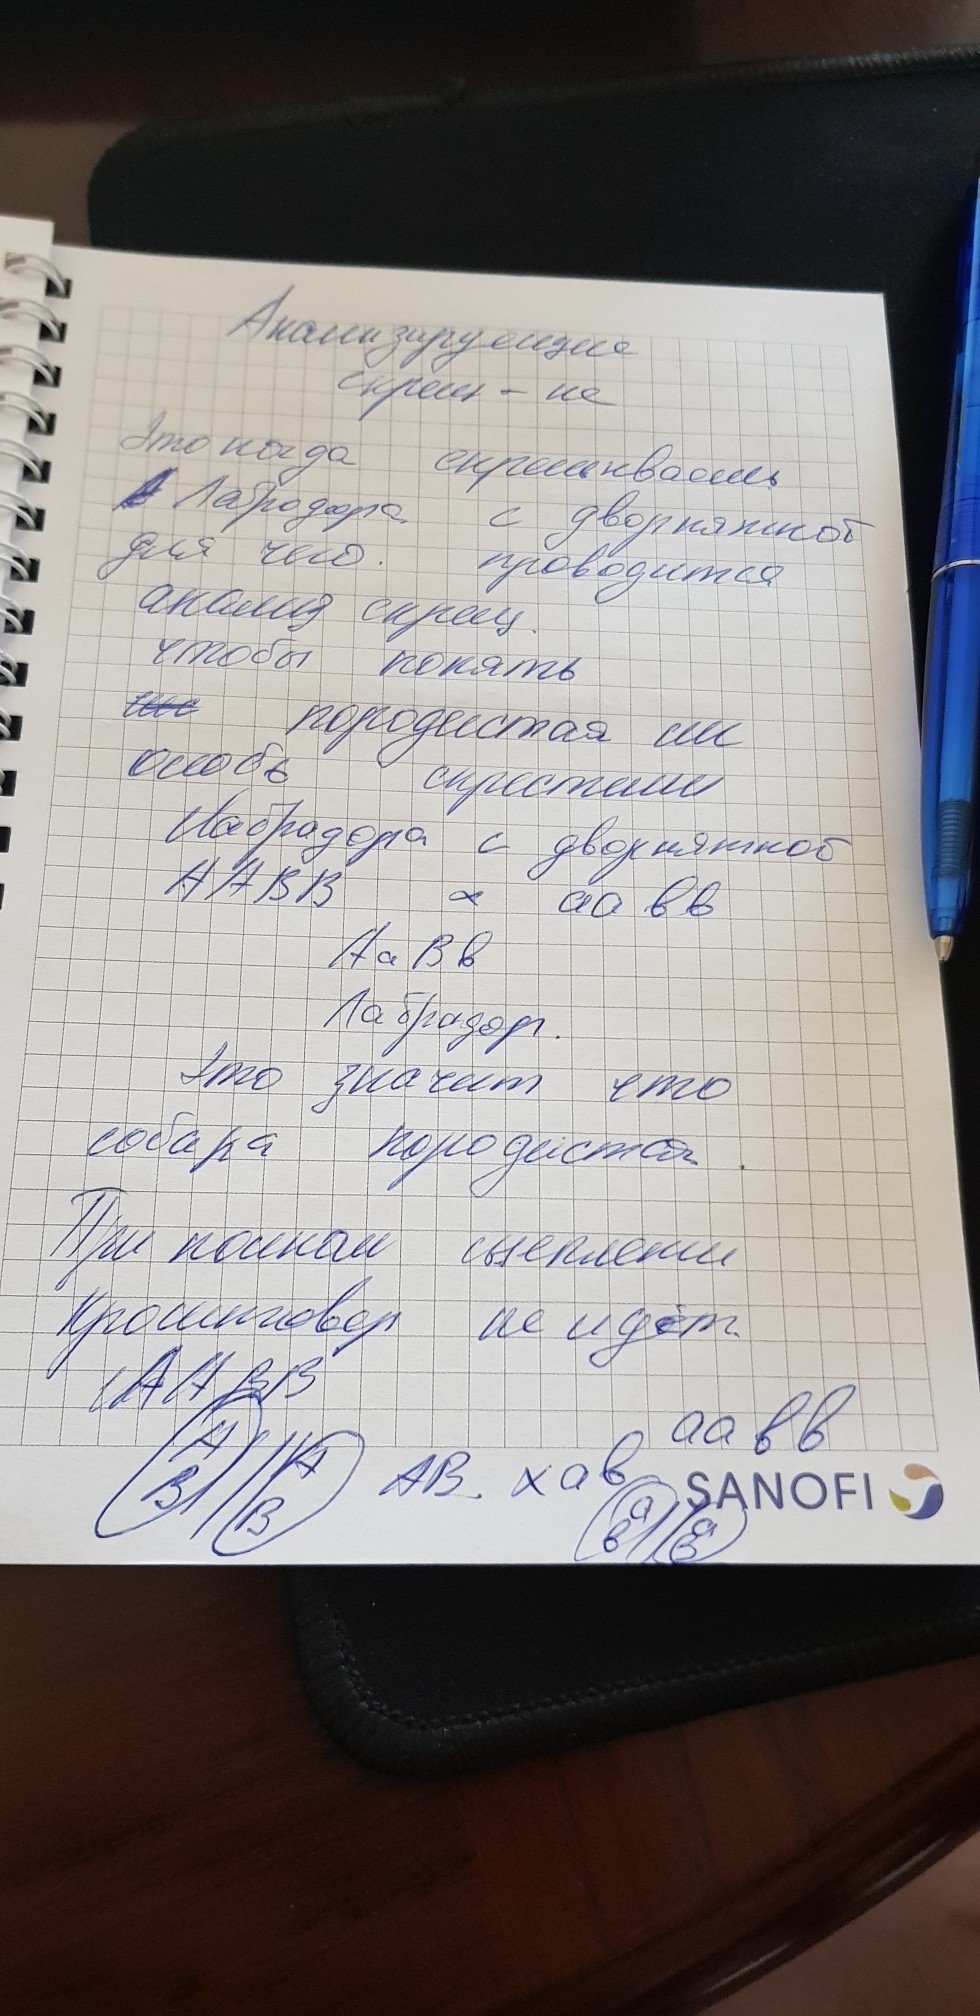 Анализирующие
скрещ-не
Это когда скрещиваешь
Лабродора с дворняжкой
для чего. проводится
анализ скрещ.
чтобы понять
породистая ли
особь скрестили
Лабрадора с дворняжкой
ААВВ х аа вв
АаВв
Лабрадор.
Это значит что
собака породистая.
При полном сцеплении
Кроссинговер не идёт.
ААВВ
аа вв
А А АВ. х ав SANOFI
В В а а
в в